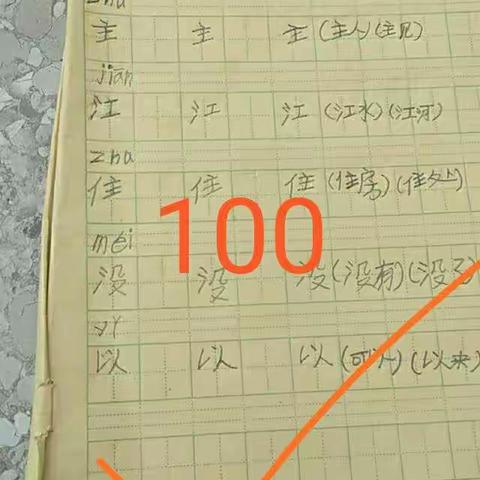 zhu
主 主 主(主人)(主见)
jian
江 江 江(江水)(江河)
zhu
住 住 住(住房)(住处)
100
mei
没 没 没(没有)(没了)
yi
以 以 以(可以)(以来)